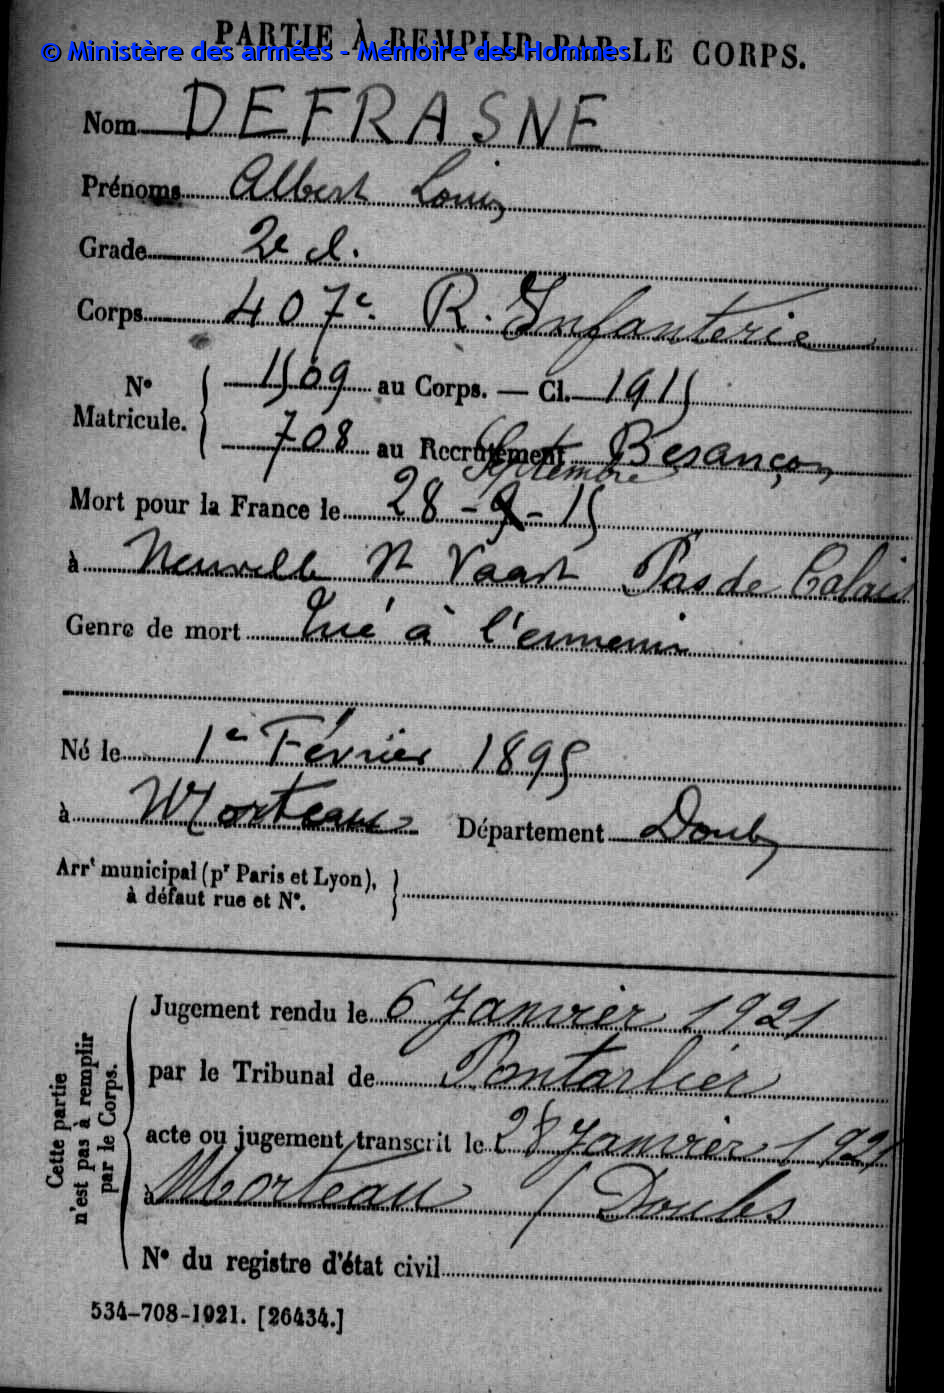 PARTIE À REMPLIR PAR LE CORPS.
© Ministère des armées - Mémoire des Hommes
Nom DEFRASNE
Prénoms Albert Louis
Grade 2e cl.
Corps 407e R. Infanterie
N° Matricule. 1509 au Corps. — Cl. 1915
708 au Recrutement Besançon
Septembre
Mort pour la France le 28 - 9 - 15
à Neuville St Vaast Pas de Calais
Genre de mort Tué à l'ennemi
Né le 1er Février 1895
à Morteau Département Doubs
Arrt municipal (pr Paris et Lyon),
à défaut rue et N°.
Cette partie n'est pas à remplir par le Corps.
Jugement rendu le 6 Janvier 1921
par le Tribunal de Pontarlier
acte ou jugement transcrit le 28 Janvier 1921
à Morteau / Doubs
N° du registre d'état civil
534-708-1921. [26434.]